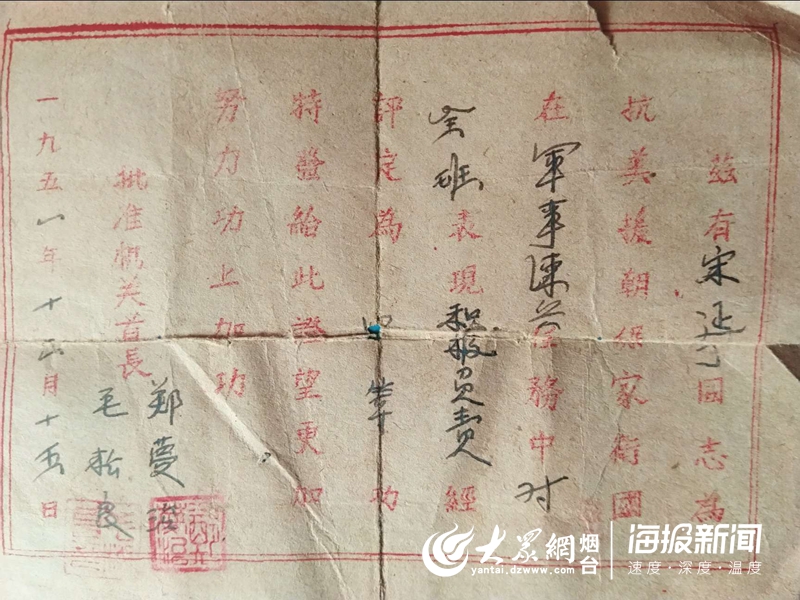 茲有宋延國志為
抗美援朝保家衛國
在軍事練務中对
全班表現积极负责經
評定為功
特發給此證望更加
努力功上加功
批准機关首長
郑
毛松良
一九五一年十月十五日
大眾網 烟台
yantai.dzwww.com
海报新闻
速度·深度·温度